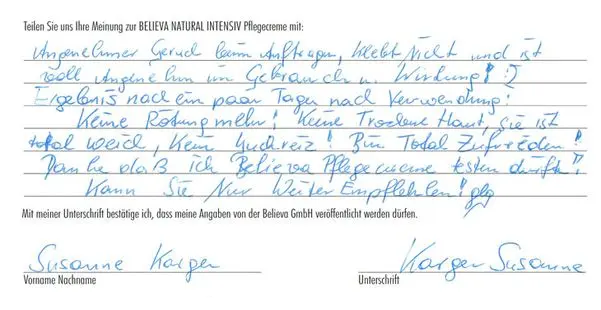 Teilen Sie uns Ihre Meinung zur BELIEVA NATURAL INTENSIV Pflegecreme mit:
Angenehmer Geruch beim Auftragen, klebt Nicht und ist
voll Angenehm im Gebrauch u. Wirkung! :)
Ergebnis nach ein paar Tagen nach Verwendung:
Keine Rötung mehr! Keine Trockene Haut, sie ist
total weich, Kein Juckreiz! Bin Total Zufrieden!
Danke daß ich Believa Pflegecreme testen durfte!!
Kann Sie Nur Weiter Empfehlen!
Mit meiner Unterschrift bestätige ich, dass meine Angaben von der Believa GmbH veröffentlicht werden dürfen.
Susanne Karger Karger Susanne
Vorname Nachname Unterschrift